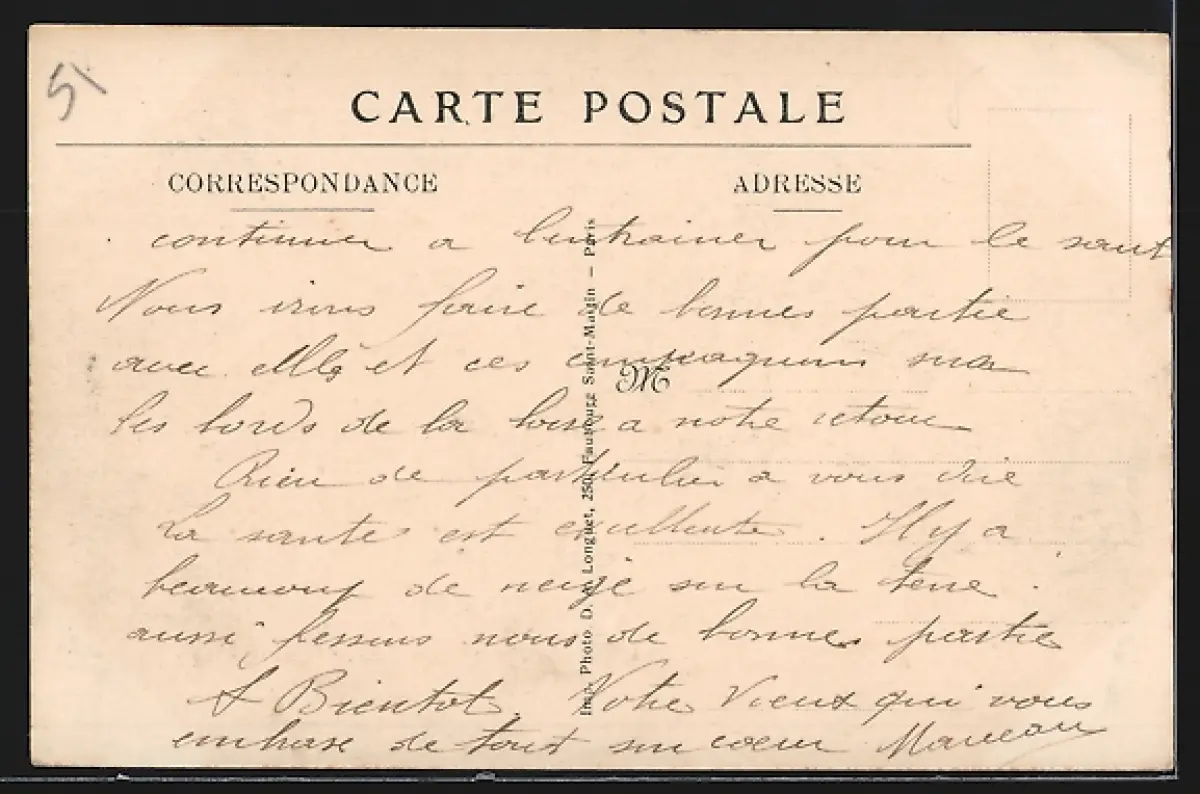 51
CARTE POSTALE
CORRESPONDANCE
ADRESSE
continuer a l'entrainer pour le saut
Nous irons faire de bonnes partie
avec elle et ces compagnons sur
les bords de la a notre retour
Rien de particulier a vous dire
La sante est excellente. Il y a
beaucoup de neige sur la terre.
aussi fesons nous de bonnes partie
A Bientot. Votre Vieux qui vous
embrase de tout son coeur
Imp. Photo D. A. Longuet, 250, Faubourg Saint-Martin – Paris
M